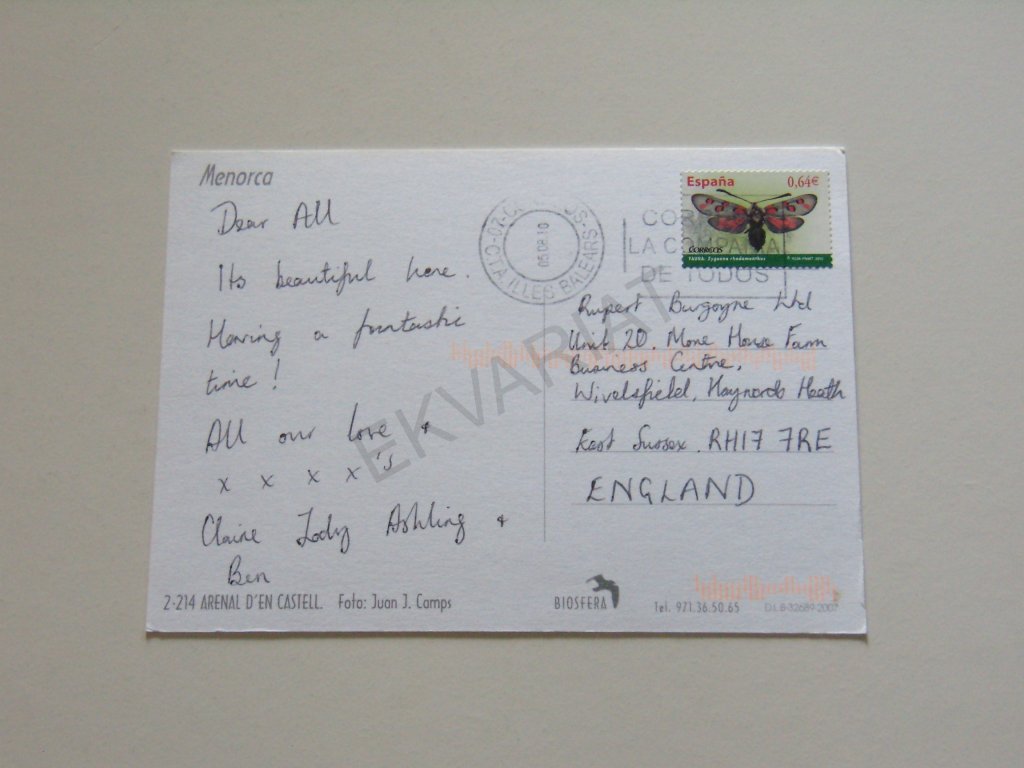 Menorca
Dear All
Its beautiful here.
Having a fantastic
time!
All our love &
x x x x's
Claire Jody Ashling &
Ben
2-214 ARENAL D'EN CASTELL. Foto: Juan J. Camps
España 0,64€
CORREOS
FAUNA: Zygaena rhadamanthus
05.08.10
C.T.A. ILLES BALEARS
LA COMPAÑIA
DE TODOS
Rupert Burgoyne Ltd
Unit 20. More House Farm
Business Centre,
Wivelsfield, Haywards Heath
East Sussex. RH17 7RE
ENGLAND
BIOSFERA
Tel. 971.36.50.65
D.L.B-32689-2007
EKVARIAT